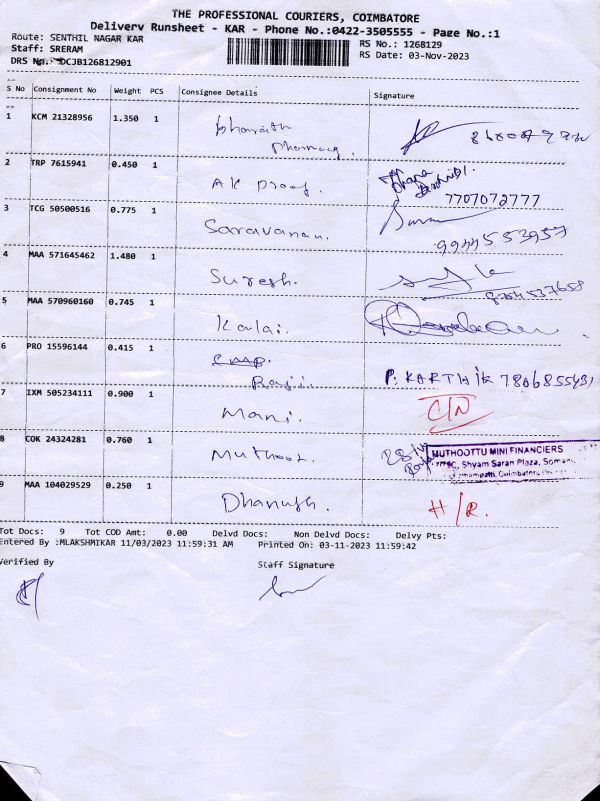 THE PROFESSIONAL COURIERS, COIMBATORE
Delivery Runsheet - KAR - Phone No.:0422-3505555 - Page No.:1
Route: SENTHIL NAGAR KAR
RS No.: 1268129
Staff: SRERAM
RS Date: 03-Nov-2023
DRS No.: DCJB126812901
S No Consignment No Weight PCS Consignee Details Signature
1 KCM 21328956 1.350 1
2 TRP 7615941 0.450 1 AK proof.
7707072777
3 TCG 50500516 0.775 1 Saravanan.
9944553957
4 MAA 571645462 1.480 1 Suresh.
8754537658
5 MAA 570960160 0.745 1 Kalai.
6 PRO 15596144 0.415 1 Raji. P. KARTHIK
7 IXM 505234111 0.900 1 Mani. C/N
8 COK 24324281 0.760 1 Muthoot MUTHOOTTU MINI FINANCIERS
Shyam Saran Plaza,
Coimbatore
9 MAA 104029529 0.250 1 Dhanush. H/R.
Tot Docs: 9 Tot COD Amt: 0.00 Delvd Docs: Non Delvd Docs: Delvy Pts:
Entered By :MLAKSHMIKAR 11/03/2023 11:59:31 AM Printed On: 03-11-2023 11:59:42
Verified By Staff Signature